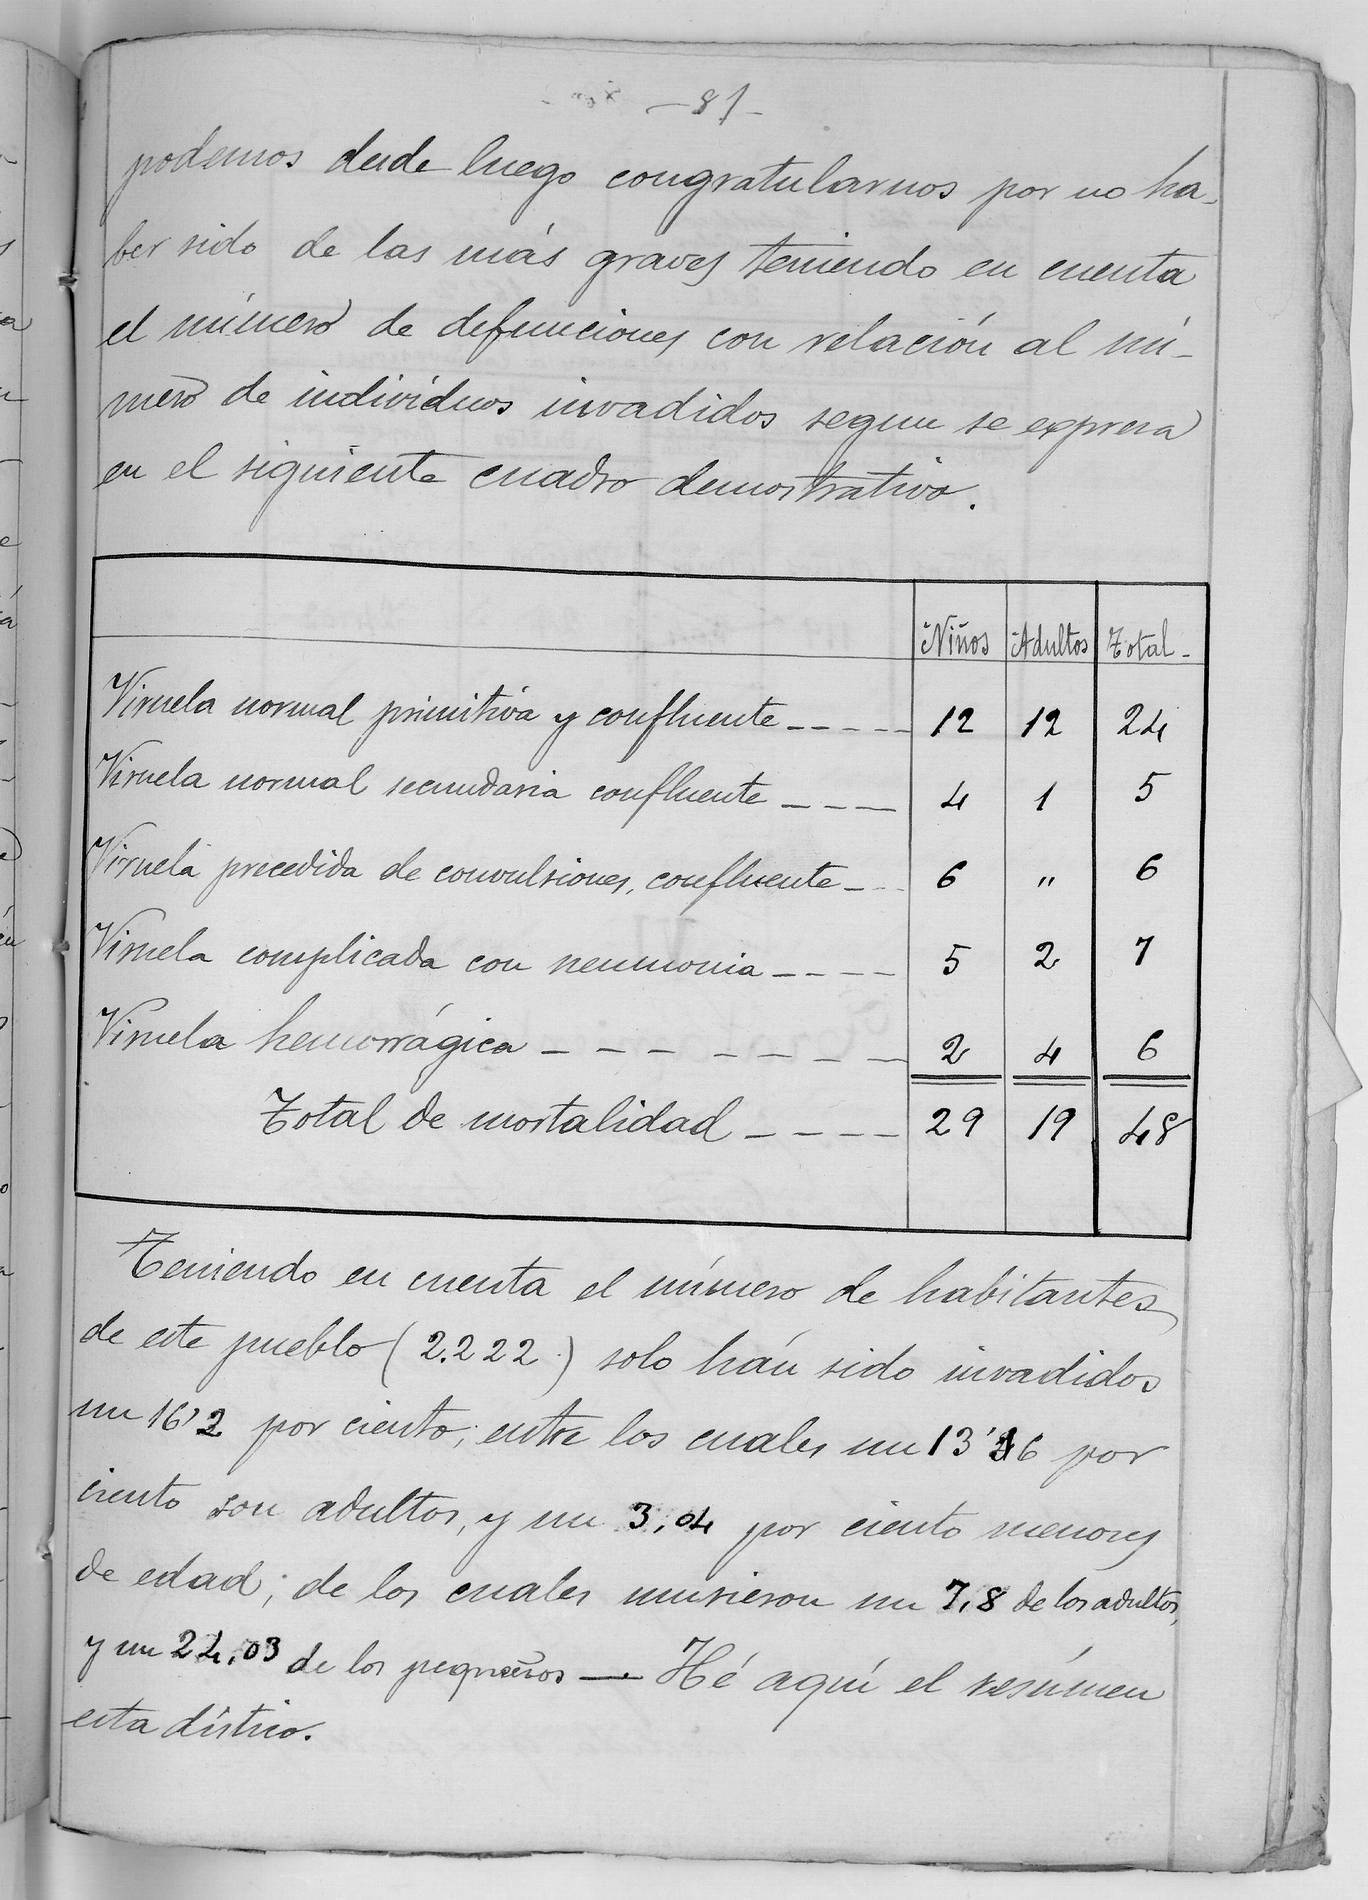 -81-
podemos desde luego congratularnos por no ha-
ber sido de las más graves teniendo en cuenta
el número de defunciones con relación al nú-
mero de indivíduos invadidos segun se expresa
en el siguiente cuadro demostrativo.
Niños Adultos Total-
Viruela normal primitiva y confluente ----- 12 12 24
Viruela normal secundaria confluente ---- 4 1 5
Viruela precedida de convulsiones, confluente -- 6 " 6
Viruela complicada con neumonia ---- 5 2 7
Viruela hemorrágica ------- 2 4 6
Total de mortalidad ---- 29 19 48
Teniendo en cuenta el número de habitantes
de este pueblo (2.222) solo hán sido invadidos
un 16'2 por ciento; entre los cuales un por
ciento son adultos, y un 3,04 por ciento menores
de edad; de los cuales murieron un 7,8 de los adultos,
y un 24,03 de los pequeños — Hé aquí el resúmen
estadístico.